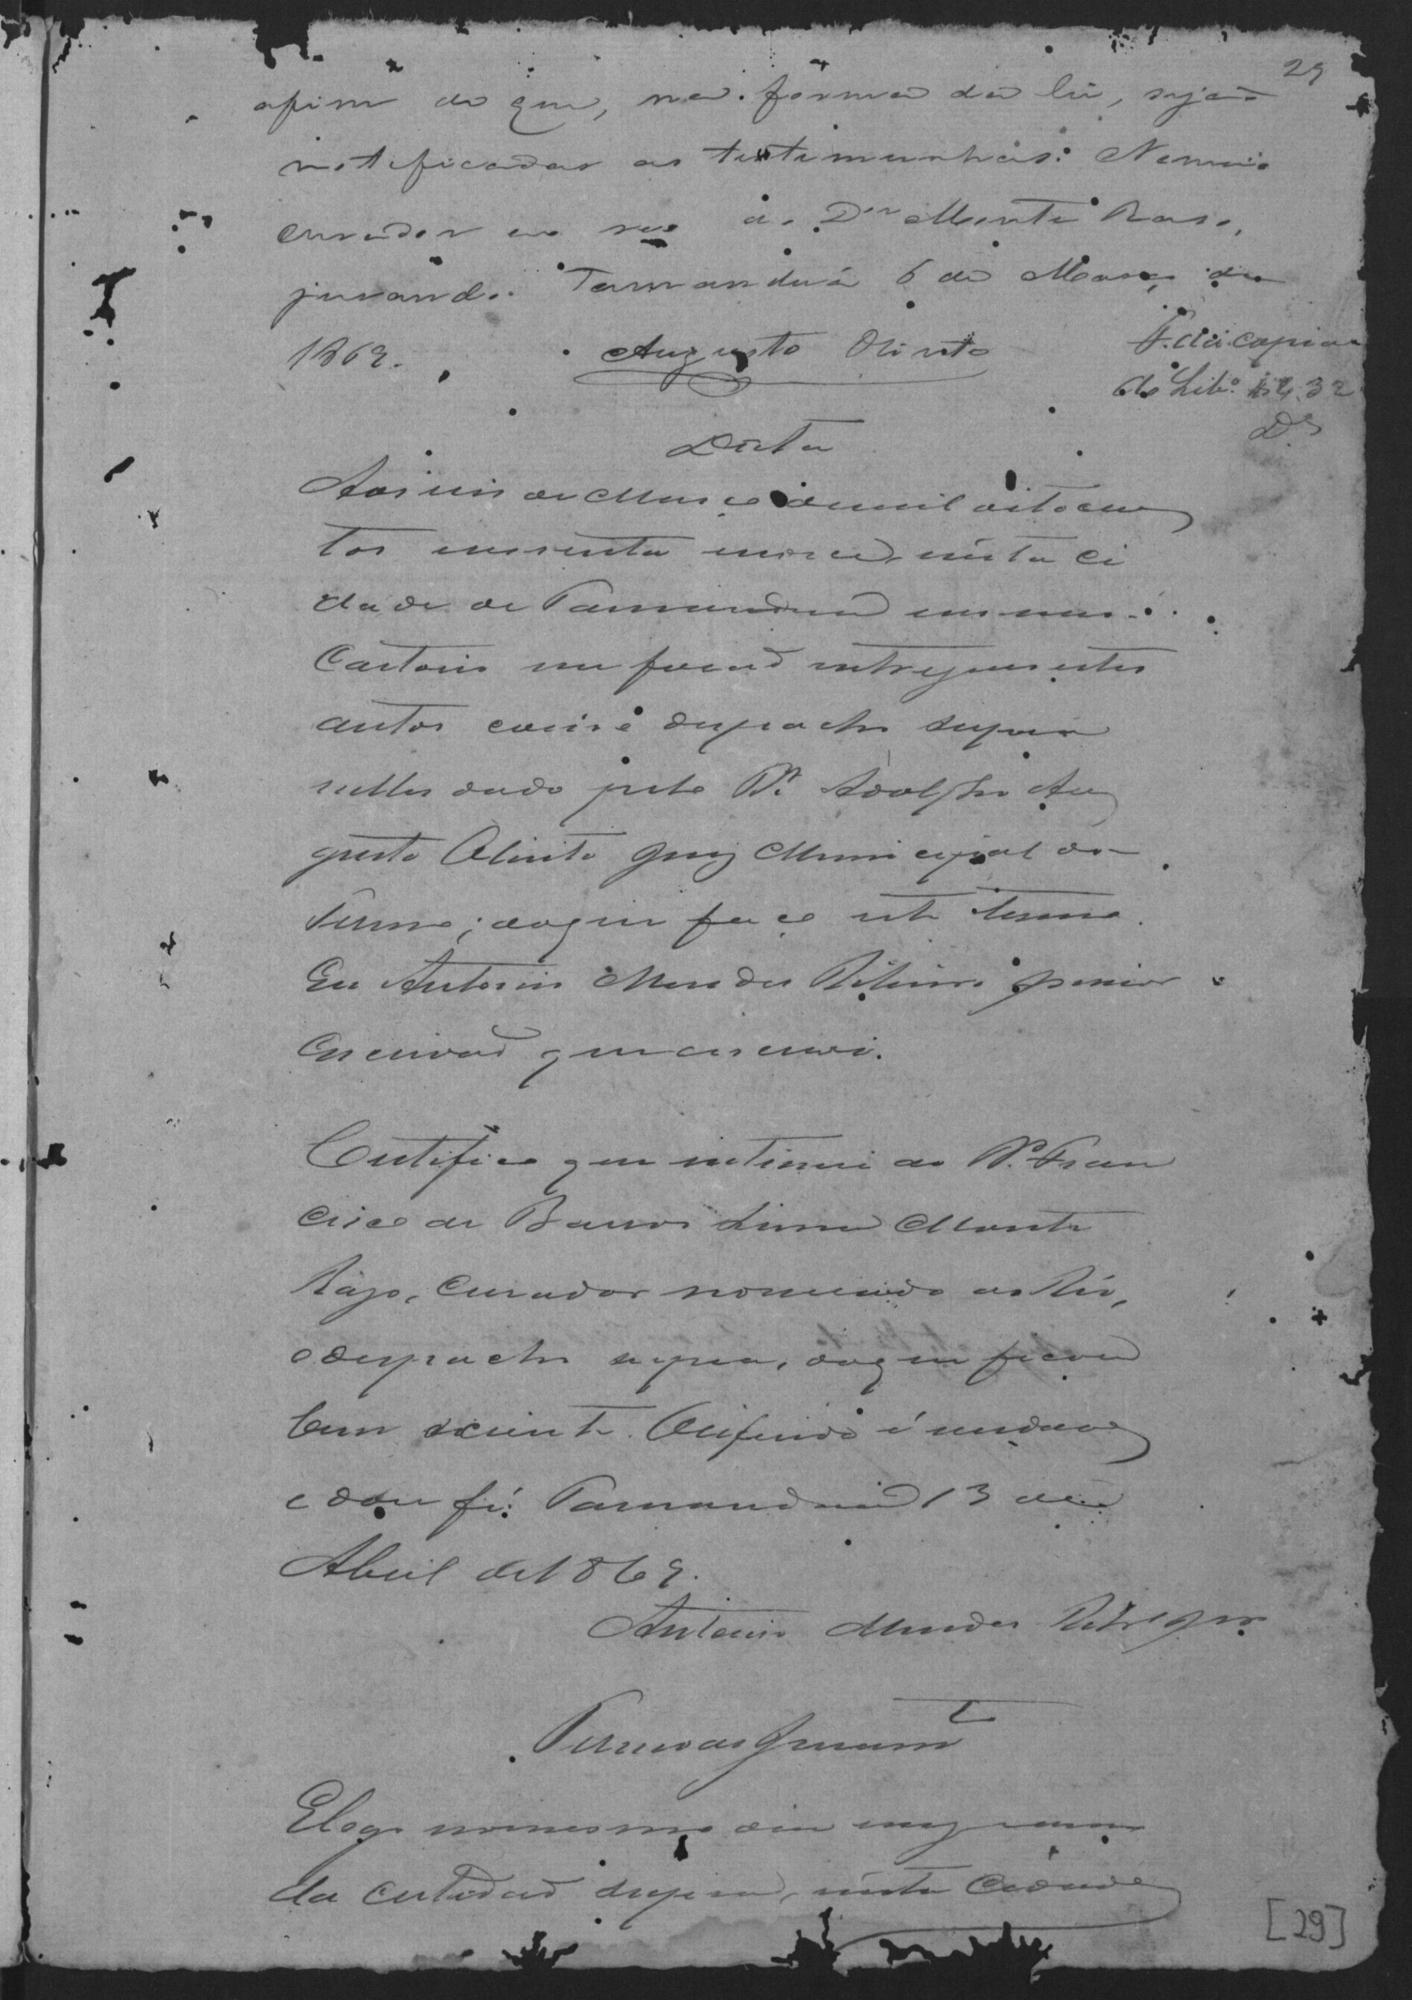 29
afim de que, na forma da lei, sejão
notificadas as testimunhas. Nomeio
curador ao reo o Dr. Monte Raso,
jurando. Tamanduá 6 de Março de
1869. Augusto Olinto
F. dei copia
de Lib.º 32
Data
Aos seis de Março de mil oitocen
tos sessenta e nove, nesta Ci
dade de Tamanduá em meu
Cartorio me forão entregues estes
autos com o despacho supra
nelles dado pelo Dr. Adolpho Au
gusto Olinto Juiz Municipal do
Termo; do que faço este termo.
Eu Antonio Mendes Ribeiro Junior
Escrivão que escrevi.
Certifico que intimei ao Dr. Fran
cisco de Barros Lima Monte
Raso, Curador nomeado ao Réo,
o despacho supra, do que ficou
bem sciente. O referido é verdade
e dou fé. Tamanduá 13 de
Abril de 1869.
Antonio Mendes Ribrº Jor.
Termo de Juramtº
E logo no mesmo dia mez e anno
da certidão supra, nesta Cidade
[29]